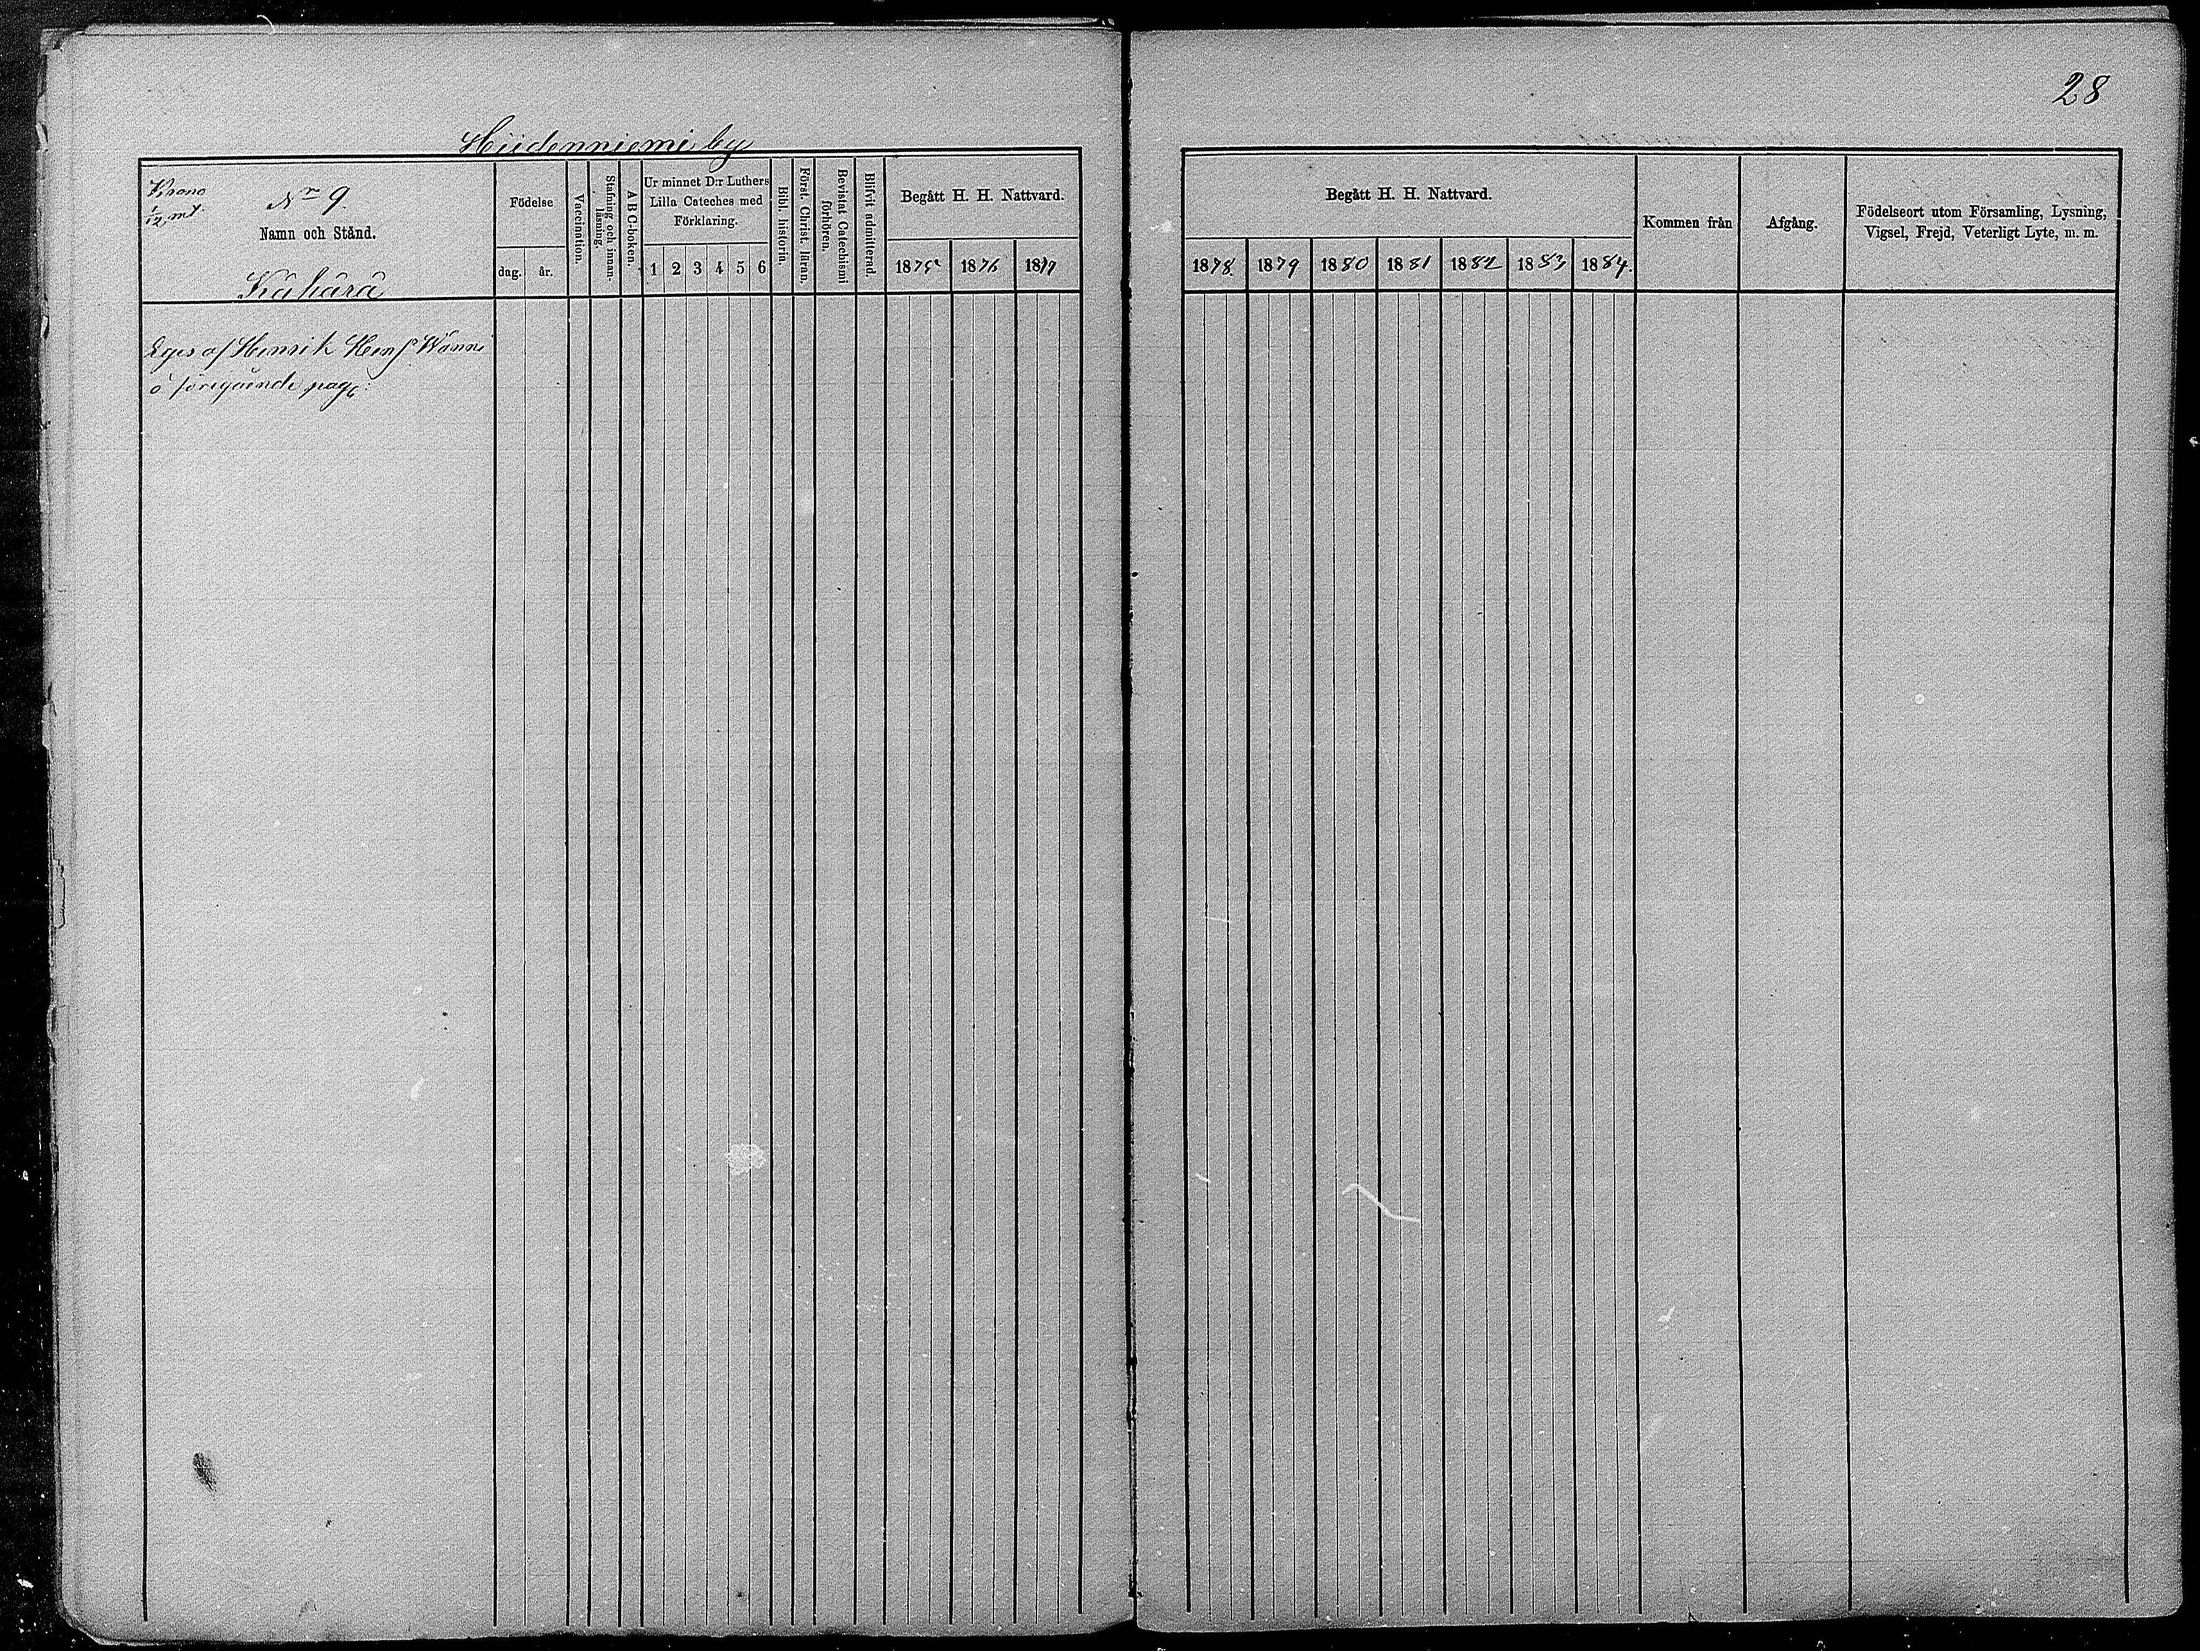 28
Hiidenniemi by
Krono
1/12 mt.
Nr 9
Namn och Stånd.
Kähärä
Födelse
dag.
år.
Vaccination.
Stafning och innan-
läsning.
A B C-boken.
Ur minnet D:r Luthers
Lilla Cateches med
Förklaring.
1 2 3 4 5 6
Bibl. historia.
Först. Christ. läran.
Bevistat Catechismi
förhören.
Blifvit admitterad.
Begått H. H. Nattvard.
1875 1876 1877
Begått H. H. Nattvard.
1878. 1879 1880 1881 1882 1883 1884.
Kommen från
Afgång.
Födelseort utom Församling, Lysning,
Vigsel, Frejd, Veterligt Lyte, m. m.
Eges af Henrik Wänni
å föregående pag: